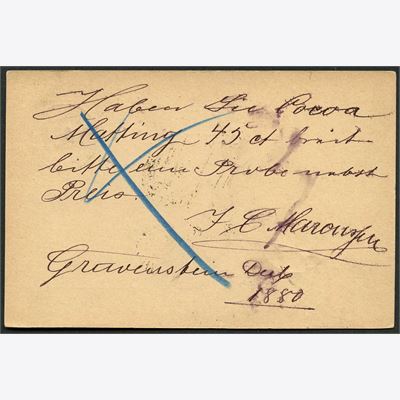 Haben Sie Cocoa
Matting 45 ct breit
bitte um Probe nebst
Preis.
J. C.
Gravenstein
1880